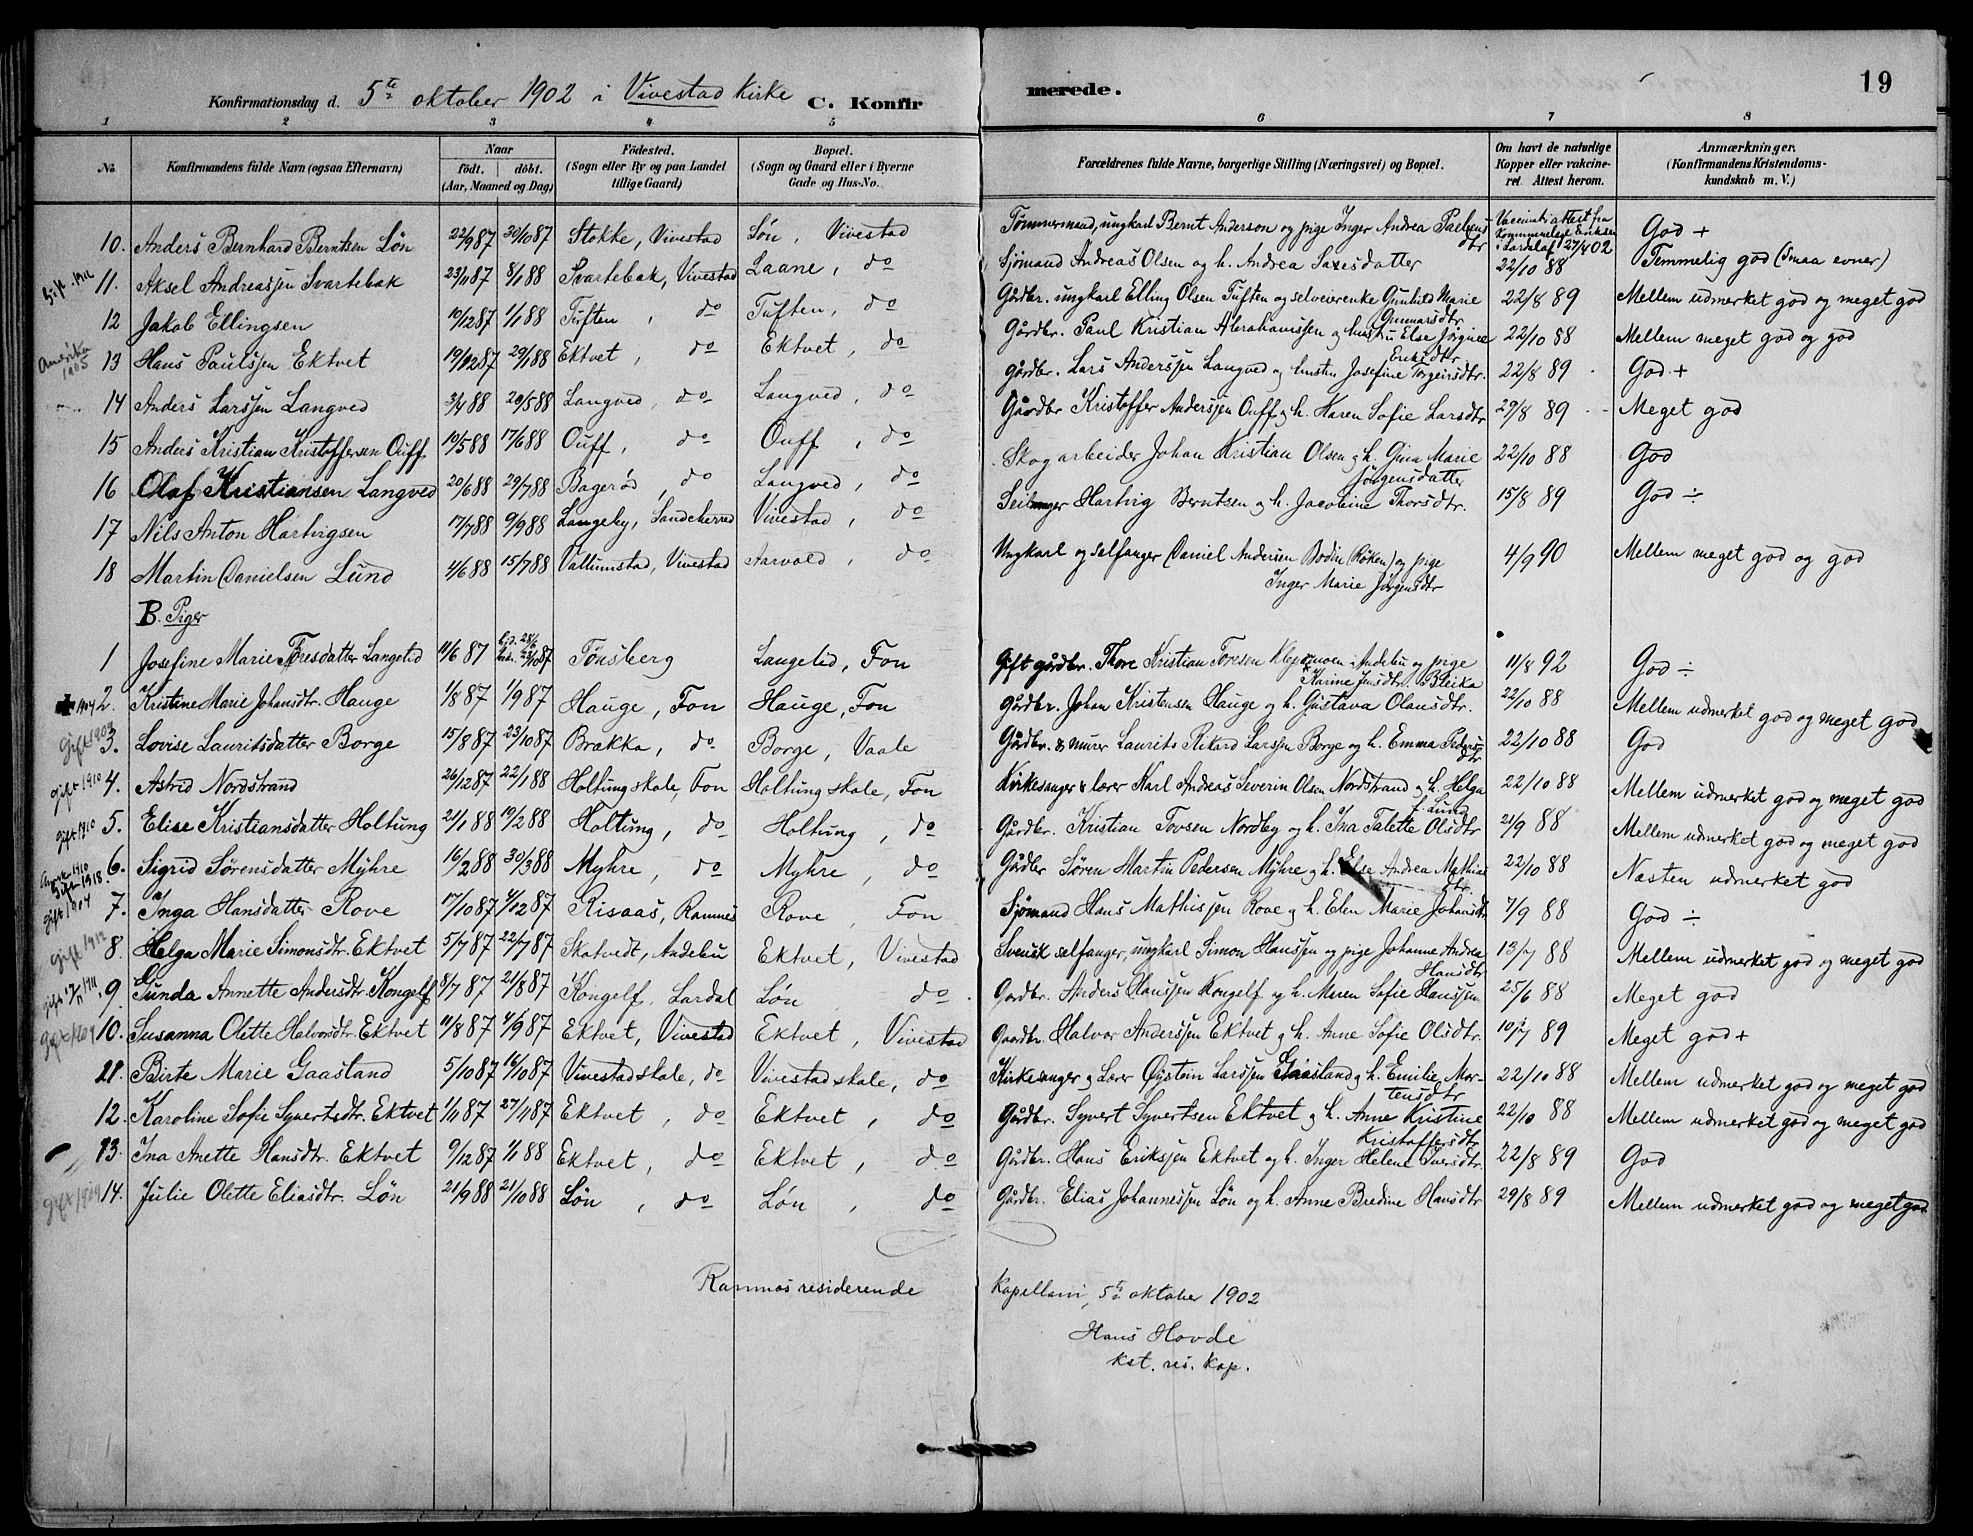 19
Konfirmationsdag d. 5te oktober 1902 i Vivestad Kirke C. Konfir merede.
1 2 3 4 5 6 7 8
No Konfirmandens fulde Navn (ogsaa Efternavn) Naar födt. döbt. (Aar, Maaned og Dag) Födested. (Sogn eller By og paa Landet tillige Gaard) Bopæl. (Sogn og Gaard eller i Byerne Gade og Hus-No. Forældrenes fulde Navne, borgerlige Stilling (Næringsvei) og Bopæl. Om havt de naturlige Kopper eller vakcineret. Attest herom. Anmærkninger. (Konfirmandens Kristendomskundskab m. V.)
10. Anders Bernhard Berntsen Løn 22/9 87 30/10 87 Stokke, Vivestad Løn, Vivestad Tømmermand, ungkarl Bernt Anderson og pige Inger Andrea Paulsdtr Vaccinationsattest fra Kommunelæge Eriksen i Lardal af 27/4 02 God +
Gift 1911 11. Aksel Andreassen Svartebak 23/11 87 8/1 88 Svartebak, Vivestad Laane, do Sjømand Andreas Olsen og h. Andrea Saresdatter 22/10 88 Temmelig god (Smaa evner)
12 Jakob Ellingsen 10/12 87 1/1 88 Tuften, do Tuften, do Gårdbr. ungkarl Elling Olsen Tuften og selveierenke Gunhild Marie Gunnarsdtr. 22/8 89 Mellem udmerket god og meget god
Amerika 1905 13 Hans Paulssen Ektvet 19/12 87 29/1 88 Ektvet, do Ektvet, do Gårdbr. Paul Kristian Abrahamssen og hustru Else Jørgine Eriksdtr 22/10 88 Mellem meget god og god
14 Anders Larssen Langved 3/4 88 20/5 88 Langved, do Langved, do Gårdbr. Lars Anderssen Langved og hustru Josefine Torgeirsdtr. 22/8 89 God +
15 Anders Kristian Kristoffersen Ouff 10/5 88 17/6 88 Ouff, do Ouff, do Gårdbr Kristoffer Anderssen Ouff og h. Karen Sofie Larsdtr 29/8 89 Meget god
16 Olaf Kristiansen Langved 20/6 88 29/7 88 Bagerød, do Langved, do Skogarbeider Johan Kristian Olsen og h. Gina Marie Jørgensdatter 22/10 88 God
17 Nils Anton Hartvigsen 17/7 88 9/9 88 Langeby, Sandeherred Vivestad, do Hartvig Berntsen og h. Jacobine Thorsdtr. 15/8 89 God ÷
18 Martin Danielsen Lund 4/6 88 15/7 88 Vallumstad, Vivestad Aarvold, do Ungkarl og selfanger Daniel Andersen Bodin (Røken) og pige Inger Marie Jørgensdtr 4/9 90 Mellem meget god og god
B. Piger
1 Josefine Marie Toresdatter Langelid 11/6 87 Tønsberg Langelid, Fon Gift gårdbr. Thore Kristian Toresen Klepsmoen i Andebu og pige Karine Jensdtr. Bleika 11/8 92 God ÷
1904 2. Kristine Marie Johansdtr. Hauge 1/8 87 1/9 87 Hauge, Fon Hauge, Fon Gårdbr. Johan Kristensen Hauge og h. Gustava Olausdtr. 22/10 88 Mellem udmerket god og meget god
gift 1903 3. Lovise Lauritsdatter Borge 15/8 87 23/10 87 Brakka, do Borge, Vaale Gårdbr. & murer Laurits Rikard Larssen Borge og h. Emma Pedersdtr 22/10 88 God
gift 1910 4. Astrid Nordstrand 26/12 87 22/1 88 Holtungskole, Fon Holtungskole, Fon Kirkesanger & lærer Karl Andreas Severin Olsen Nordstrand og h. Helga f. Lund 22/10 88 Mellem udmerket god og meget god
gift 1910 5. Elise Kristiansdatter Holtung 21/1 88 19/2 88 Holtung, do Holtung, do Gårdbr. Kristian Tovsen Nordby og h. Ina Talette Olsdtr 2/9 88 Mellem udmerket god og meget god
1910 Gift 1918. 6. Sigrid Sørensdatter Myhre 16/2 88 30/3 88 Myhre, do Myhre, do Gårdbr Søren Martin Pedersen Myhre og h. Else Andrea Mathiasdtr. 22/10 88 Næsten udmerket god
gift 1904 7. Inga Hansdatter Rove 17/10 87 4/12 87 Risaas, Ramnes Rove, Fon Sjømand Hans Mathissen Rove og h. Elen Marie Johansdtr 7/9 88 God ÷
gift 1912 8. Helga Marie Simonsdtr. Ektvet 5/7 87 22/7 87 Skatvedt, Andebu Ektvet, Vivestad Svensk selfanger, ungkarl Simon Hanssen og pige Johanne Andrea Hansdtr 13/7 88 Mellem udmerket god og meget god
gift 1911 9. Gunda Annette Andersdtr. Kongelf 8/7 87 21/8 87 Kongelf, Lardal Løn do. Gardbr. Anders Hanssen Kongelf og h. Maren Sofie Hanssen 25/6 88 Meget god
gift 1904 10. Susanna Olette Halvorsdtr. Ektvet 11/8 87 4/9 87 Ektvet, Vivestad Ektvet, Vivestad Gaardbr. Halvor Anderssen Ektvet og h. Anne Sofie Olsdtr. 10/7 89 Meget god +
11. Birte Marie Gaasland 5/10 87 16/10 87 Vivestadskole, do Vivestadskole, do Kirkesanger og Lærer Øystein Larssen Gaasland og h. Emilie Mortensdtr 22/10 88 Mellem udmerket god og meget god
12. Karoline Sofie Syvertsdtr. Ektvet 1/11 87 27/11 87 Ektvet, do Ektvet, do Gårdbr. Syvert Syvertsen Ektvet og h. Anne Kristine Kristoffersdtr 22/10 88 Mellem udmerket god og meget god
13. Ina Anette Hansdtr. Ektvet 9/12 87 1/1 88 Ektvet, do Ektvet, do Gårdbr. Hans Erikssen Ektvet og h. Inger Helene Iversdtr. 22/8 89 God
gift 1909 14. Julie Olette Eliasdtr. Løn 21/9 88 21/10 88 Løn, do Løn, do Gårdbr. Elias Johannessen Løn og h. Anne Bredine Hansdtr 29/8 89 Mellem udmerket god og meget god
Ramnes residerende Kapellani, 5te oktober 1902
Hans Hovde
kst. res. kap.